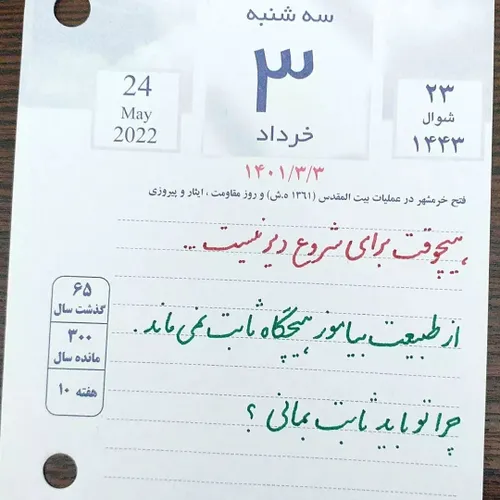 سه شنبه
۳
خرداد
24
May
2022
۲۳
شوال
۱۴۴۳
۱۴۰۱/۳/۳
فتح خرمشهر در عملیات بیت المقدس (۱۳۶۱ ه.ش) و روز مقاومت ، ایثار و پیروزی
هیچوقت برای شروع دیر نیست ..
از طبیعت بیاموز هیچگاه ثابت نمی ماند .
چرا تو باید ثابت بمانی ؟
۶۵
گذشت سال
۳۰۰
مانده سال
هفته ۱۰